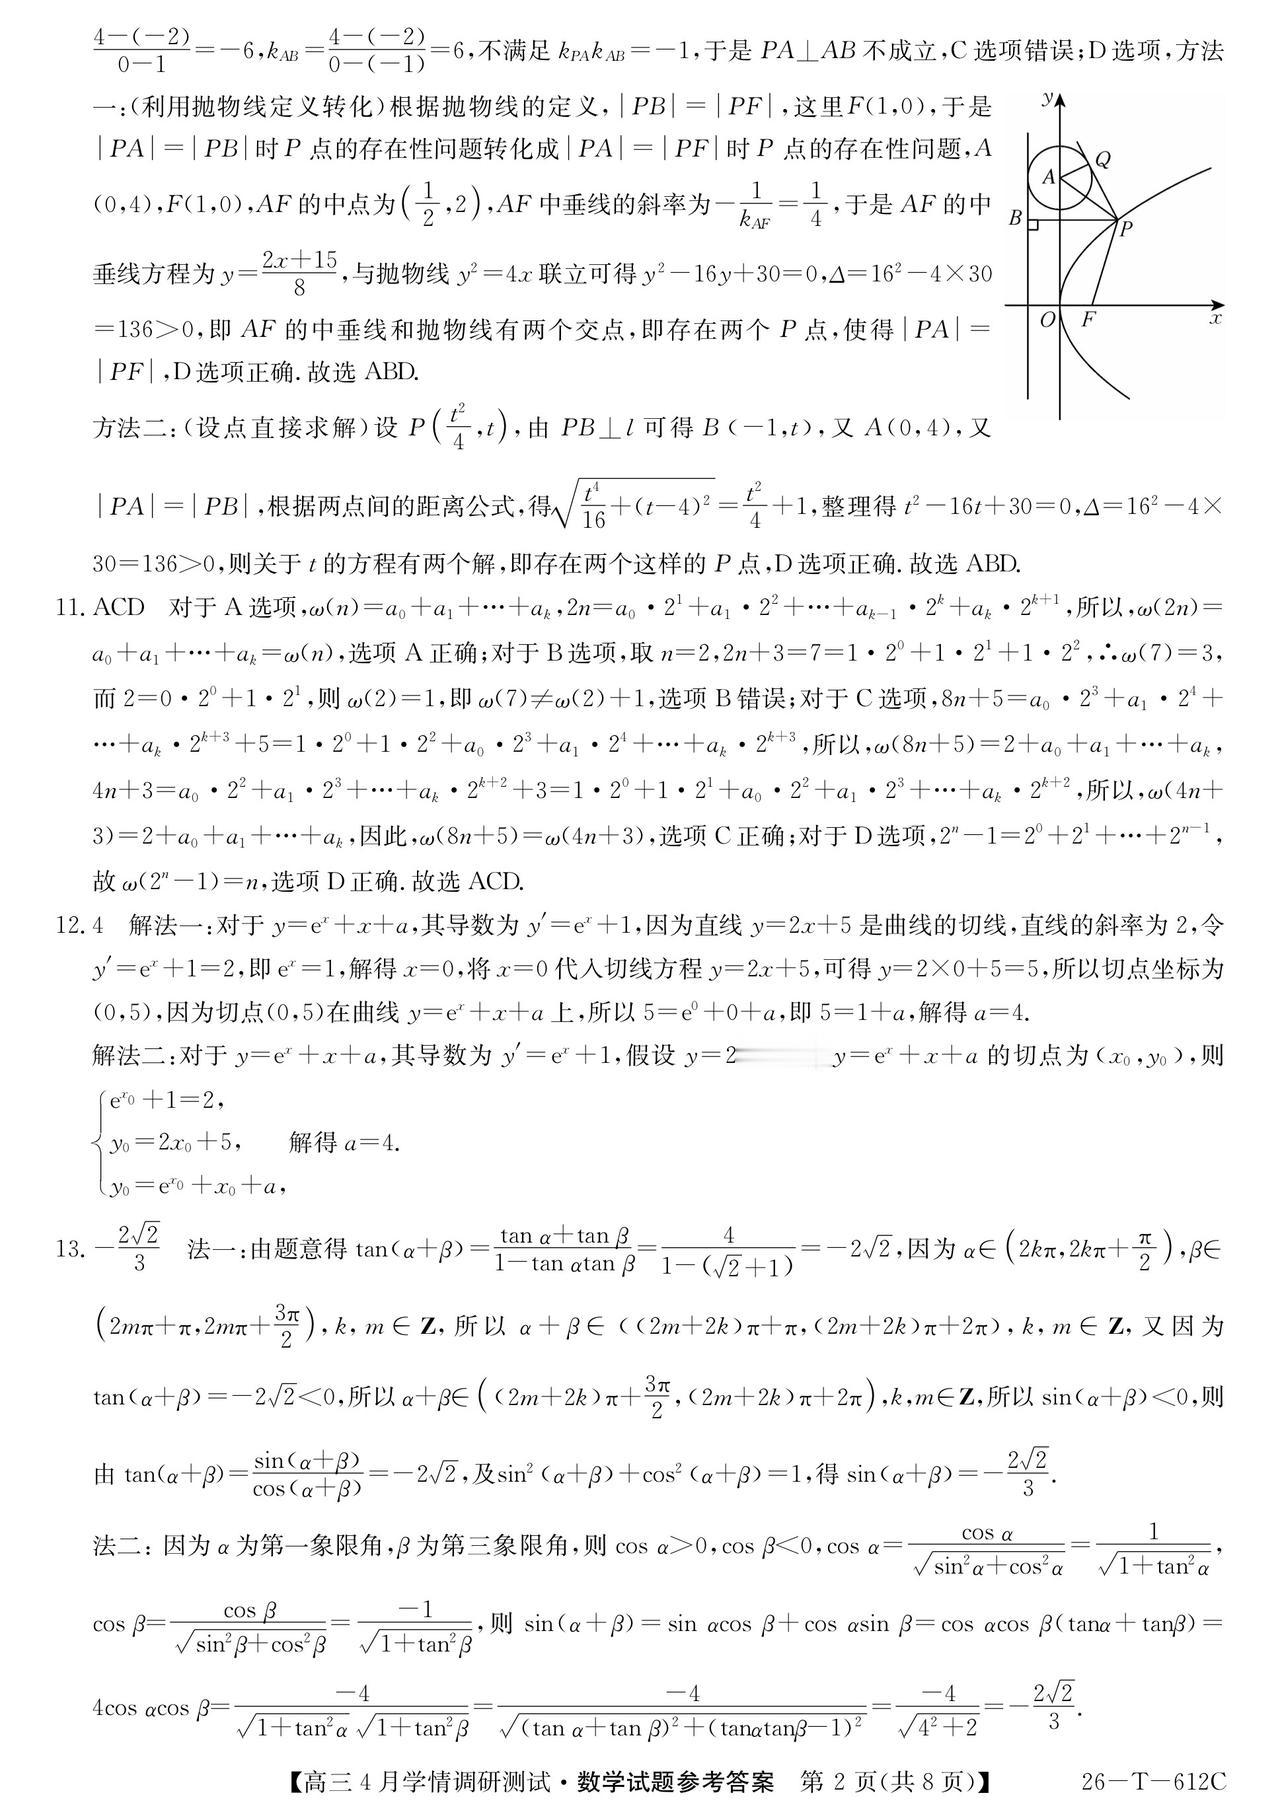 $\frac{4-(-2)}{0-1}=-6,k_{AB}=\frac{4-(-2)}{0-(-1)}=6$,不满足 $k_{PA}k_{AB}=-1$,于是 PA⊥AB 不成立,C 选项错误;D 选项,方法
一:(利用抛物线定义转化)根据抛物线的定义,|PB|=|PF|,这里F(1,0),于是
|PA|=|PB|时P 点的存在性问题转化成|PA|=|PF|时P 点的存在性问题,A
(0,4),F(1,0),AF 的中点为$\left(\frac{1}{2},2\right)$,AF 中垂线的斜率为$-\frac{1}{k_{AF}}=\frac{1}{4}$,于是 AF 的中
垂线方程为 $y=\frac{2x+15}{8}$,与抛物线 $y^2=4x$ 联立可得 $y^2-16y+30=0$,$Δ=16^2-4×30$
=136>0,即 AF 的中垂线和抛物线有两个交点,即存在两个 P 点,使得|PA|=
|PF|,D 选项正确.故选 ABD.
y
A
Q
B
P
O
F
x
方法二:(设点直接求解)设 $P\left(\frac{t^2}{4},t\right)$,由 PB⊥l 可得 B(-1,t),又 A(0,4),又
|PA|=|PB|,根据两点间的距离公式,得$\sqrt{\frac{t^4}{16}+(t-4)^2}=\frac{t^2}{4}+1$,整理得 $t^2-16t+30=0$,$Δ=16^2-4×$
30=136>0,则关于 t 的方程有两个解,即存在两个这样的 P 点,D 选项正确.故选 ABD.
11. ACD 对于 A 选项,$ω(n)=a_0+a_1+⋯+a_k$,$2n=a_0·2^1+a_1·2^2+⋯+a_{k-1}·2^k+a_k·2^{k+1}$,所以,ω(2n)=
$a_0+a_1+⋯+a_k=ω(n)$,选项 A 正确;对于 B 选项,取 n=2,$2n+3=7=1·2^0+1·2^1+1·2^2$,∴ω(7)=3,
而 $2=0·2^0+1·2^1$,则 ω(2)=1,即 ω(7)≠ω(2)+1,选项 B 错误;对于 C 选项,$8n+5=a_0·2^3+a_1·2^4+$
$⋯+a_k·2^{k+3}+5=1·2^0+1·2^2+a_0·2^3+a_1·2^4+⋯+a_k·2^{k+3}$,所以,$ω(8n+5)=2+a_0+a_1+⋯+a_k$,
$4n+3=a_0·2^2+a_1·2^3+⋯+a_k·2^{k+2}+3=1·2^0+1·2^1+a_0·2^2+a_1·2^3+⋯+a_k·2^{k+2}$,所以,ω(4n+
3)=$2+a_0+a_1+⋯+a_k$,因此,ω(8n+5)=ω(4n+3),选项 C 正确;对于 D 选项,$2^n-1=2^0+2^1+⋯+2^{n-1}$,
故 $ω(2^n-1)=n$,选项 D 正确.故选 ACD.
12. 4 解法一:对于 $y=e^x+x+a$,其导数为 $y'=e^x+1$,因为直线 y=2x+5 是曲线的切线,直线的斜率为 2,令
$y'=e^x+1=2$,即 $e^x=1$,解得 x=0,将 x=0 代入切线方程 y=2x+5,可得 y=2×0+5=5,所以切点坐标为
(0,5),因为切点(0,5)在曲线 $y=e^x+x+a$ 上,所以 $5=e^0+0+a$,即 5=1+a,解得 a=4.
解法二:对于 $y=e^x+x+a$,其导数为 $y'=e^x+1$,假设 y=2 $y=e^x+x+a$ 的切点为$(x_0,y_0)$,则
$e^{x_0}+1=2$,
$y_0=2x_0+5$, 解得 a=4.
$y_0=e^{x_0}+x_0+a$,
13. $-\frac{2\sqrt{2}}{3}$ 法一:由题意得 $\tan(α+β)=\frac{\tan α+\tan β}{1-\tan α\tan β}=\frac{4}{1-(\sqrt{2}+1)}=-2\sqrt{2}$,因为 $α∈\left(2kπ,2kπ+\frac{π}{2}\right)$,β∈
$\left(2mπ+π,2mπ+\frac{3π}{2}\right)$,k,m∈Z,所以 α+β∈((2m+2k)π+π,(2m+2k)π+2π),k,m∈Z,又因为
$\tan(α+β)=-2\sqrt{2}<0$,所以 $α+β∈\left((2m+2k)π+\frac{3π}{2},(2m+2k)π+2π\right)$,k,m∈Z,所以 sin(α+β)<0,则
由 $\tan(α+β)=\frac{\sin(α+β)}{\cos(α+β)}=-2\sqrt{2}$,及$\sin^2(α+β)+\cos^2(α+β)=1$,得 $\sin(α+β)=-\frac{2\sqrt{2}}{3}$.
法二:因为 α 为第一象限角,β 为第三象限角,则 cos α>0,cos β<0,$\cos α=\frac{\cos α}{\sqrt{\sin^2α+\cos^2α}}=\frac{1}{\sqrt{1+\tan^2α}}$,
$\cos β=\frac{\cos β}{\sqrt{\sin^2β+\cos^2β}}=\frac{-1}{\sqrt{1+\tan^2β}}$,则 sin(α+β)=sin αcos β+cos αsin β=cos αcos β(tanα+tanβ)=
$4\cos α\cos β=\frac{-4}{\sqrt{1+\tan^2α}\sqrt{1+\tan^2β}}=\frac{-4}{\sqrt{(\tan α+\tan β)^2+(\tanα\tanβ-1)^2}}=\frac{-4}{\sqrt{4^2+2}}=-\frac{2\sqrt{2}}{3}$.
【高三 4 月学情调研测试·数学试题参考答案 第 2 页(共 8 页)】 26-T-612C